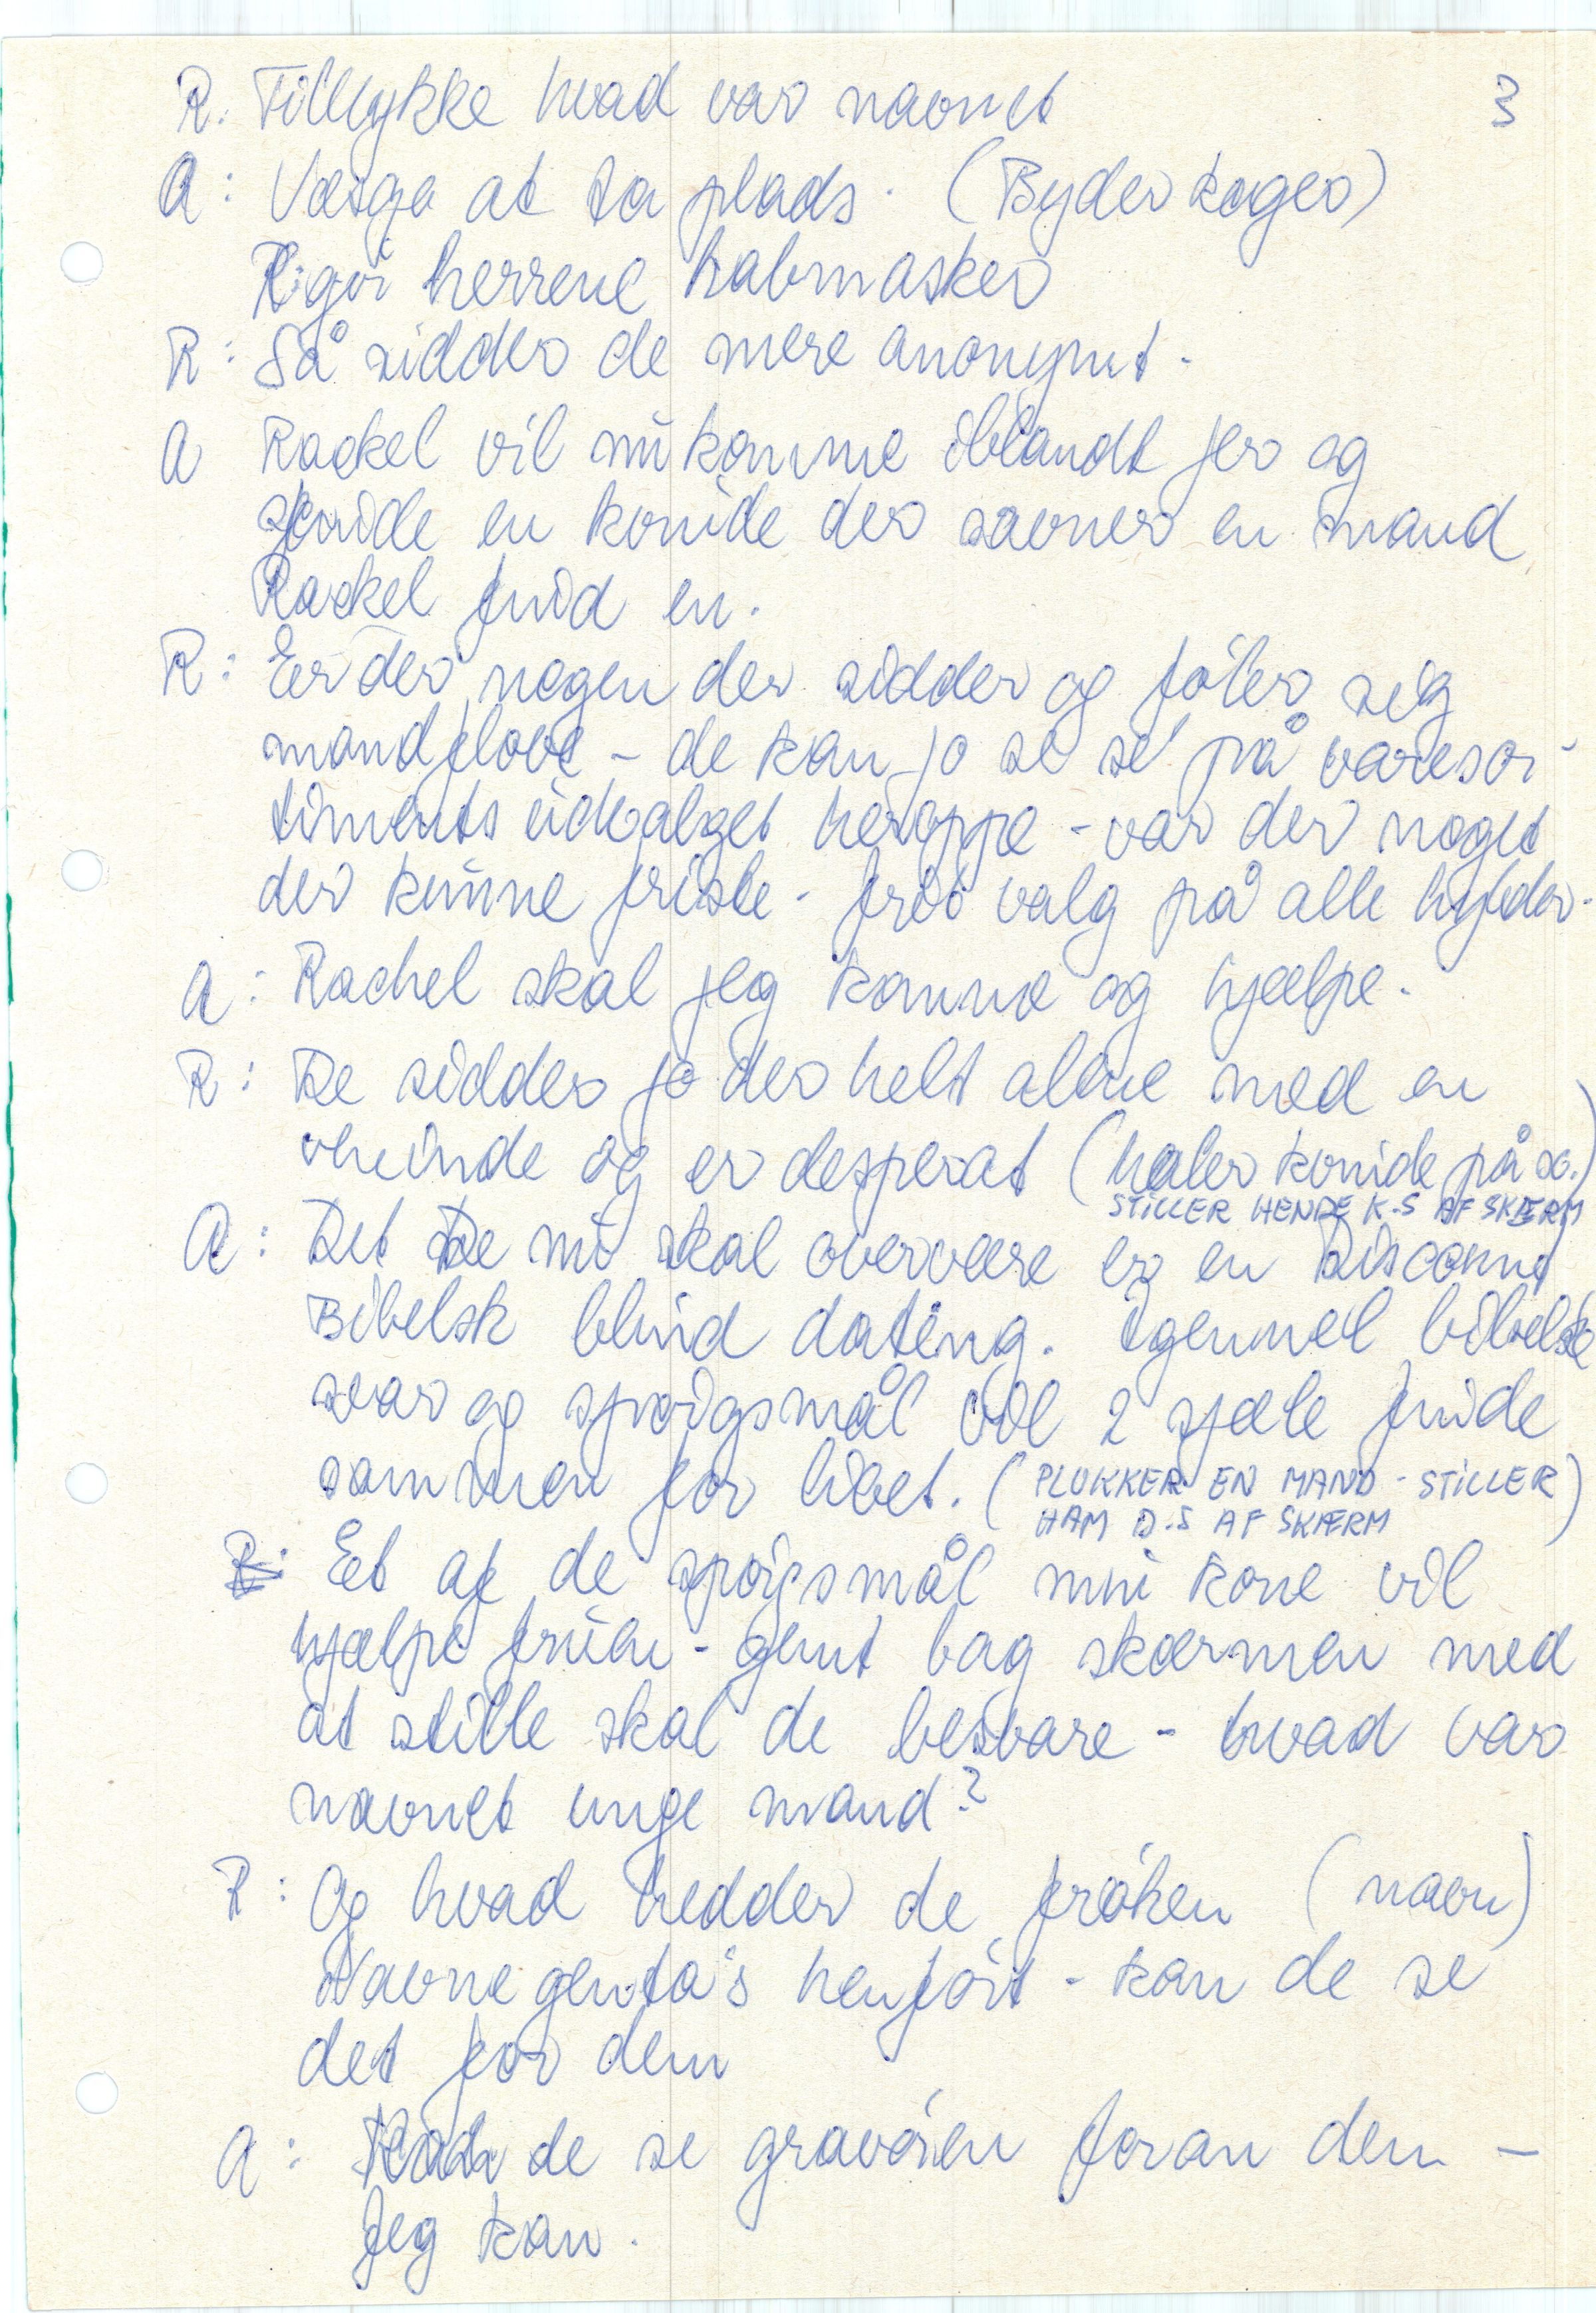 R: Tillykke hvad var navnet
3
A: Værsgo at ta plads. (Byder kager)
R: gir herrene halvmasker
R: Så sidder de mere anonymt.
A Rackel vil nu komme iblandt jer og
finde en kvinde der savner en mand
Rackel find en.
R: Er der nogen der sidder og føler sig
mandfolove - de kan jo se se på varesor-
timents udvalget heroppe - var der noget
der kunne friste - frit valg på alle hylder.
A: Rachel skal jeg komme og hjælpe.
R: De sidder jo der helt alene med en
veninde og er desperat (haler kvinde på sc.)
STILLER HENDE K-S AF SKÆRM
A: Det De nu skal overvære er en Discount
Bibelsk blind dating. Igennem bibelsk
svar og spørgsmål vil 2 sjæle finde
sammen for livet. (PLUKKER EN MAND - STILLER)
HAM D.S AF SKÆRM
R: Et af de spørgsmål min kone vil
hjælpe fruen - gemt bag skærmen med
at stille skal de besvare - hvad var
navnet unge mand?
R: Og hvad hedder de frøken (navn)
Navne genta's henført - kan de se
det for dem
A: Kan de se gravøren foran dem -
Jeg kan.